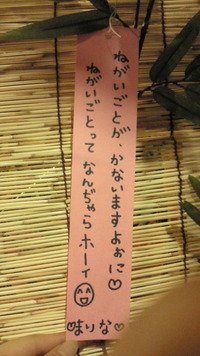 ねがいごとが、かないますよぉに♡
ねがいごとって なんぢゃらホーイ
♡まりな♡